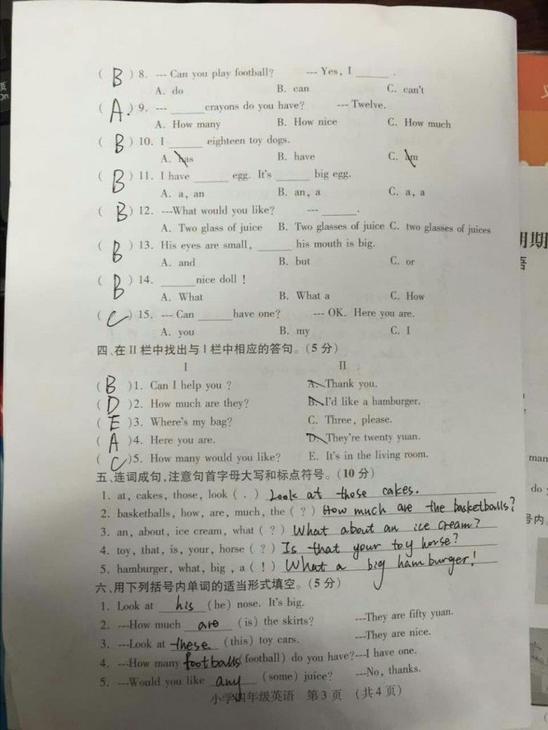 ( B ) 8. --- Can you play football? --- Yes, I ______ .
A. do B. can C. can't
( A. ) 9. --- ______crayons do you have? --- Twelve.
A. How many B. How nice C. How much
( B ) 10. I ______ eighteen toy dogs.
A. has B. have C. am
( B ) 11. I have ______ egg. It's ______ big egg.
A. a, an B. an, a C. a, a
( B ) 12. ---What would you like? --- ______.
A. Two glass of juice B. Two glasses of juice C. two glasses of juices
( B ) 13. His eyes are small, ______ his mouth is big.
A. and B. but C. or
( B ) 14. ______nice doll !
A. What B. What a C. How
( C ) 15. --- Can ______have one? --- OK. Here you are.
A. you B. my C. I
四、在 II 栏中找出与 I 栏中相应的答句。(5 分)
I II
( B )1. Can I help you ? A. Thank you.
( D )2. How much are they? B. I'd like a hamburger.
( E )3. Where's my bag? C. Three, please.
( A )4. Here you are. D. They're twenty yuan.
( C )5. How many would you like? E. It's in the living room.
五、连词成句,注意句首字母大写和标点符号。(10 分)
1. at, cakes, those, look ( . ) Look at those cakes.
2. basketballs, how, are, much, the ( ? ) How much are the basketballs?
3. an, about, ice cream, what ( ? ) What about an ice cream?
4. toy, that, is, your, horse ( ? ) Is that your toy horse?
5. hamburger, what, big , a ( ! ) What a big hamburger!
六、用下列括号内单词的适当形式填空。(5 分)
1. Look at his (he) nose. It's big.
2. ---How much are (is) the skirts? ---They are fifty yuan.
3. ---Look at these (this) toy cars. ---They are nice.
4. ---How many footballs (football) do you have?---I have one.
5. ---Would you like any (some) juice? ---No, thanks.
小学四年级英语 第 3 页 (共 4 页)